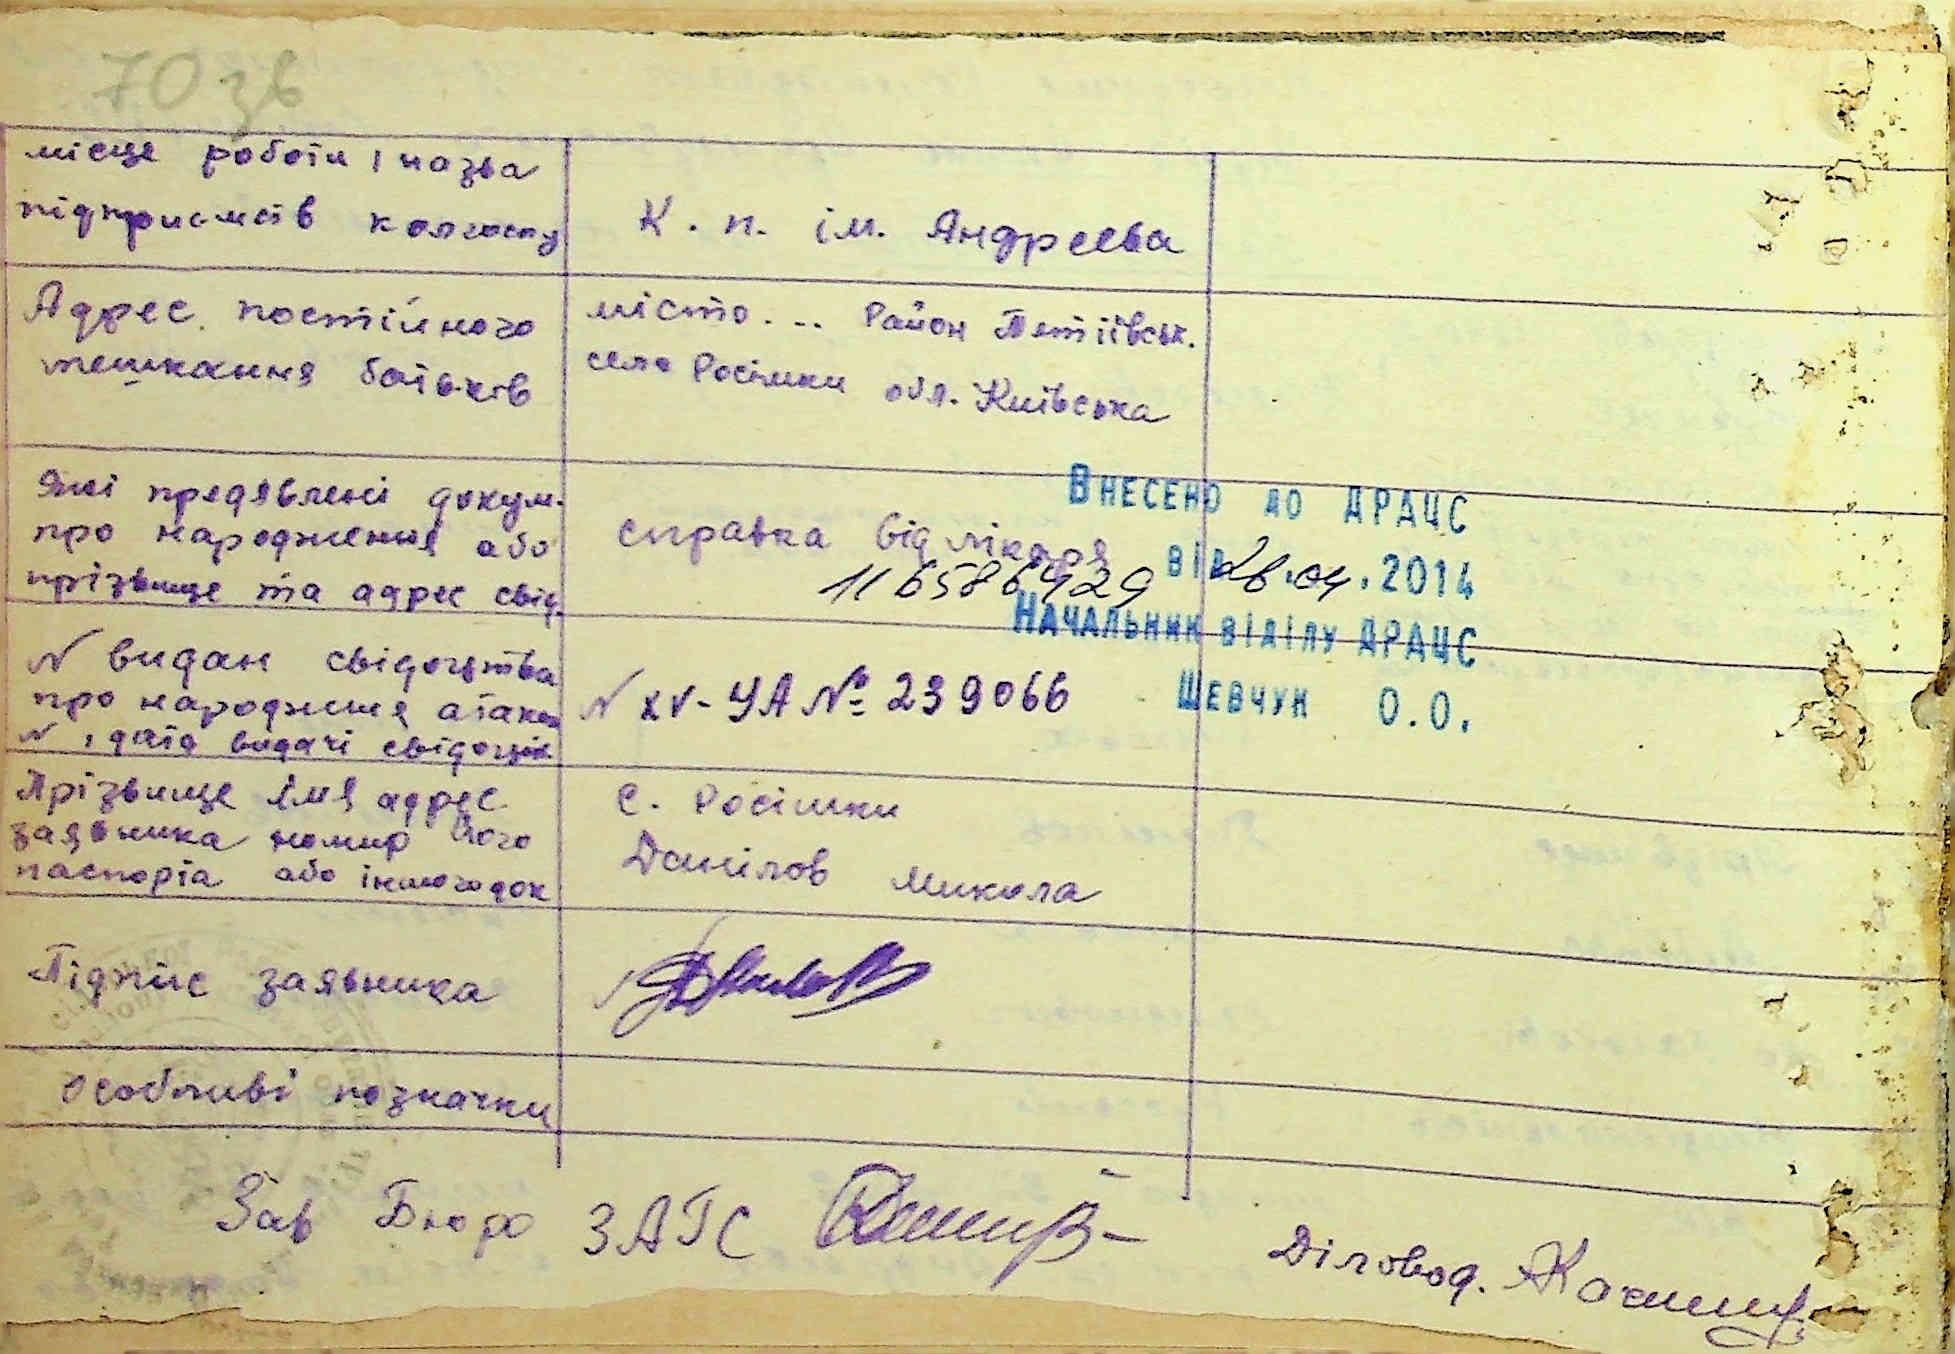 70 зв
місце роботи і назва
підприємств колгоспу
К. п. ім. Андреєва
Адрес постійного
мешкання батьків
місто... Район Тетіївськ.
село Росішки обл. Київська
Які предявлені докум.
про народження або
прізвище та адрес свід.
справка від лікаря
1165864929
Внесено до ДРАЦС
від 28.04.2014
Начальник відділу ДРАЦС
Шевчук О.О.
N видан свідоцтва
про народження а також
N, дата видачі свідоцтв
N XV-УА № 239066
Прізвище імя адрес
заявника номир його
паспорта або іншого док
с. Росішки
Данілов Микола
Підпис заявника
Особливі позначки
Зав Бюро ЗАГС
Діловод.